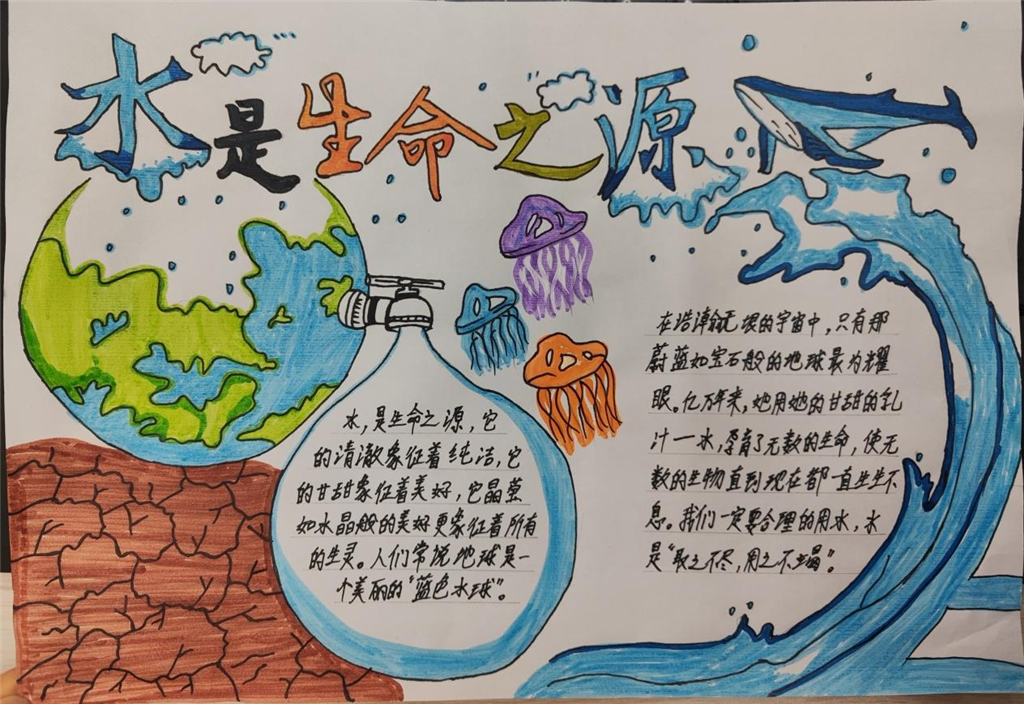 水是生命之源
水,是生命之源,它
的清澈象征着纯洁,它
的甘甜象征着美好,它晶莹
如水晶般的美好更象征着所有
的生灵。人们常说地球是一
个美丽的“蓝色水球”。
在浩瀚无垠的宇宙中,只有那
蔚蓝如宝石般的地球最为耀
眼。亿万年来,她用她的甘甜的乳
汁一水,孕育了无数的生命,使无
数的生物直到现在都一直生生不
息。我们一定要合理的用水,水
是“取之不尽,用之不竭”。